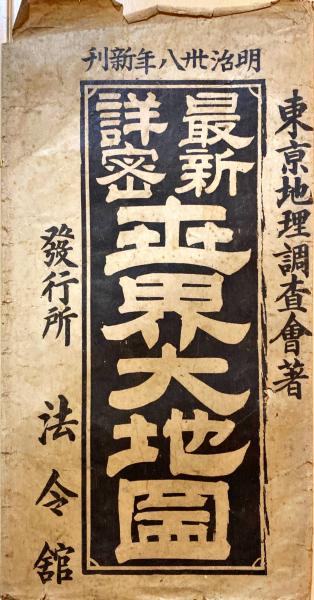 明治卅八年新刊
東京地理調査會著
最新
詳密
世界大地圖
發行所 法令舘